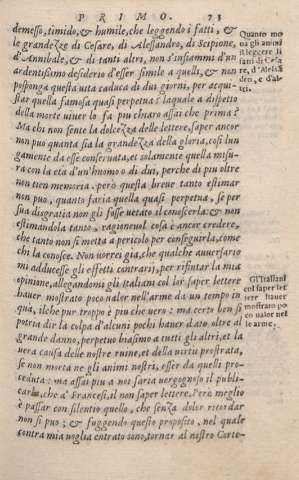 PRIMO. 73
demesso, timido, & humile, che leggendo i fatti, &
le grandezze di Cesare, di Alessandro, di Scipione,
d'Annibale, & di tanti altri, non s'infiammi d'un
ardentissimo desiderio d'esser simile a quelli, & non
posponga questa vita caduca di dui giorni, per acqui-
star quella famosa quasi perpetua? laquale a dispetto
della morte viuer lo fa piu chiaro assai che prima?
Ma chi non sente la dolcezza delle lettere, saper ancor
non puo quanta sia la grandezza della gloria, cosi lun
gamente da esse conseruata, et solamente quella misu-
ra con la età d'un'huomo o di dui, perche di piu oltre
non tien memoria. però questa breue tanto estimar
non puo, quanto faria quella quasi perpetua, se per
sua disgratia non gli fosse uetato il conoscerla: & non
estimandola tanto, ragioneuol cosa è ancor credere,
che tanto non si metta a pericolo per conseguirla, come
chi la conosce. Non vorrei già, che qualche auuersario
mi adducesse gli effetti contrarij, per rifiutar la mia
opinione, allegandomi gli Italiani col lor saper lettere
hauer mostrato poco valor nell'arme da un tempo in
qua, ilche pur troppo è piu che uero: ma certo ben si
potria dir la colpa d'alcuni pochi hauer dato oltre al
grande danno, perpetuo biasimo a tutti gli altri, et la
uera causa delle nostre ruine, et della virtu prostrata,
se non morta ne gli animi nostri, esser da quelli pro-
ceduta: ma assai piu a noi saria uergognoso il publi-
carla, che a' Francesi, il non saper lettere. Però meglio
è passar con silentio quello, che senza dolor ricordar
non si puo; & fuggendo questo proposito, nel quale
contra mia uoglia entrato sono, tornar al nostro Corte-
Quanto mo
ua gli animi
il leggere li
fatti di Cesa
re, d'Alessā
dro, e d'al-
tri.
Gl'Italiani
col saper let
tere hauer
mostrato po
co valor nel
le arme.